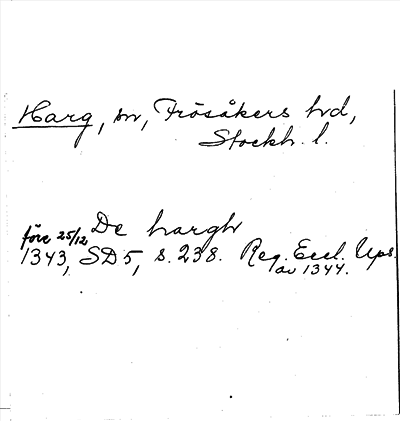 Harg, sn, Frösåkers hd,
Stockh. l.
De hargh
före 25/12
1343, SD 5, s. 238. Reg. Eccl. Ups.
av 1344.